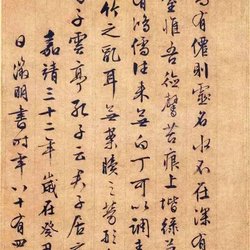 有僊則靈名水不在深有
室惟吾德馨苔痕上階綠草
有鴻儒往來無白丁可以調素
竹之亂耳無案牘之勞形
子雲亭孔子云
嘉靖三十二年歲在癸丑
日徵明書時年八十有四